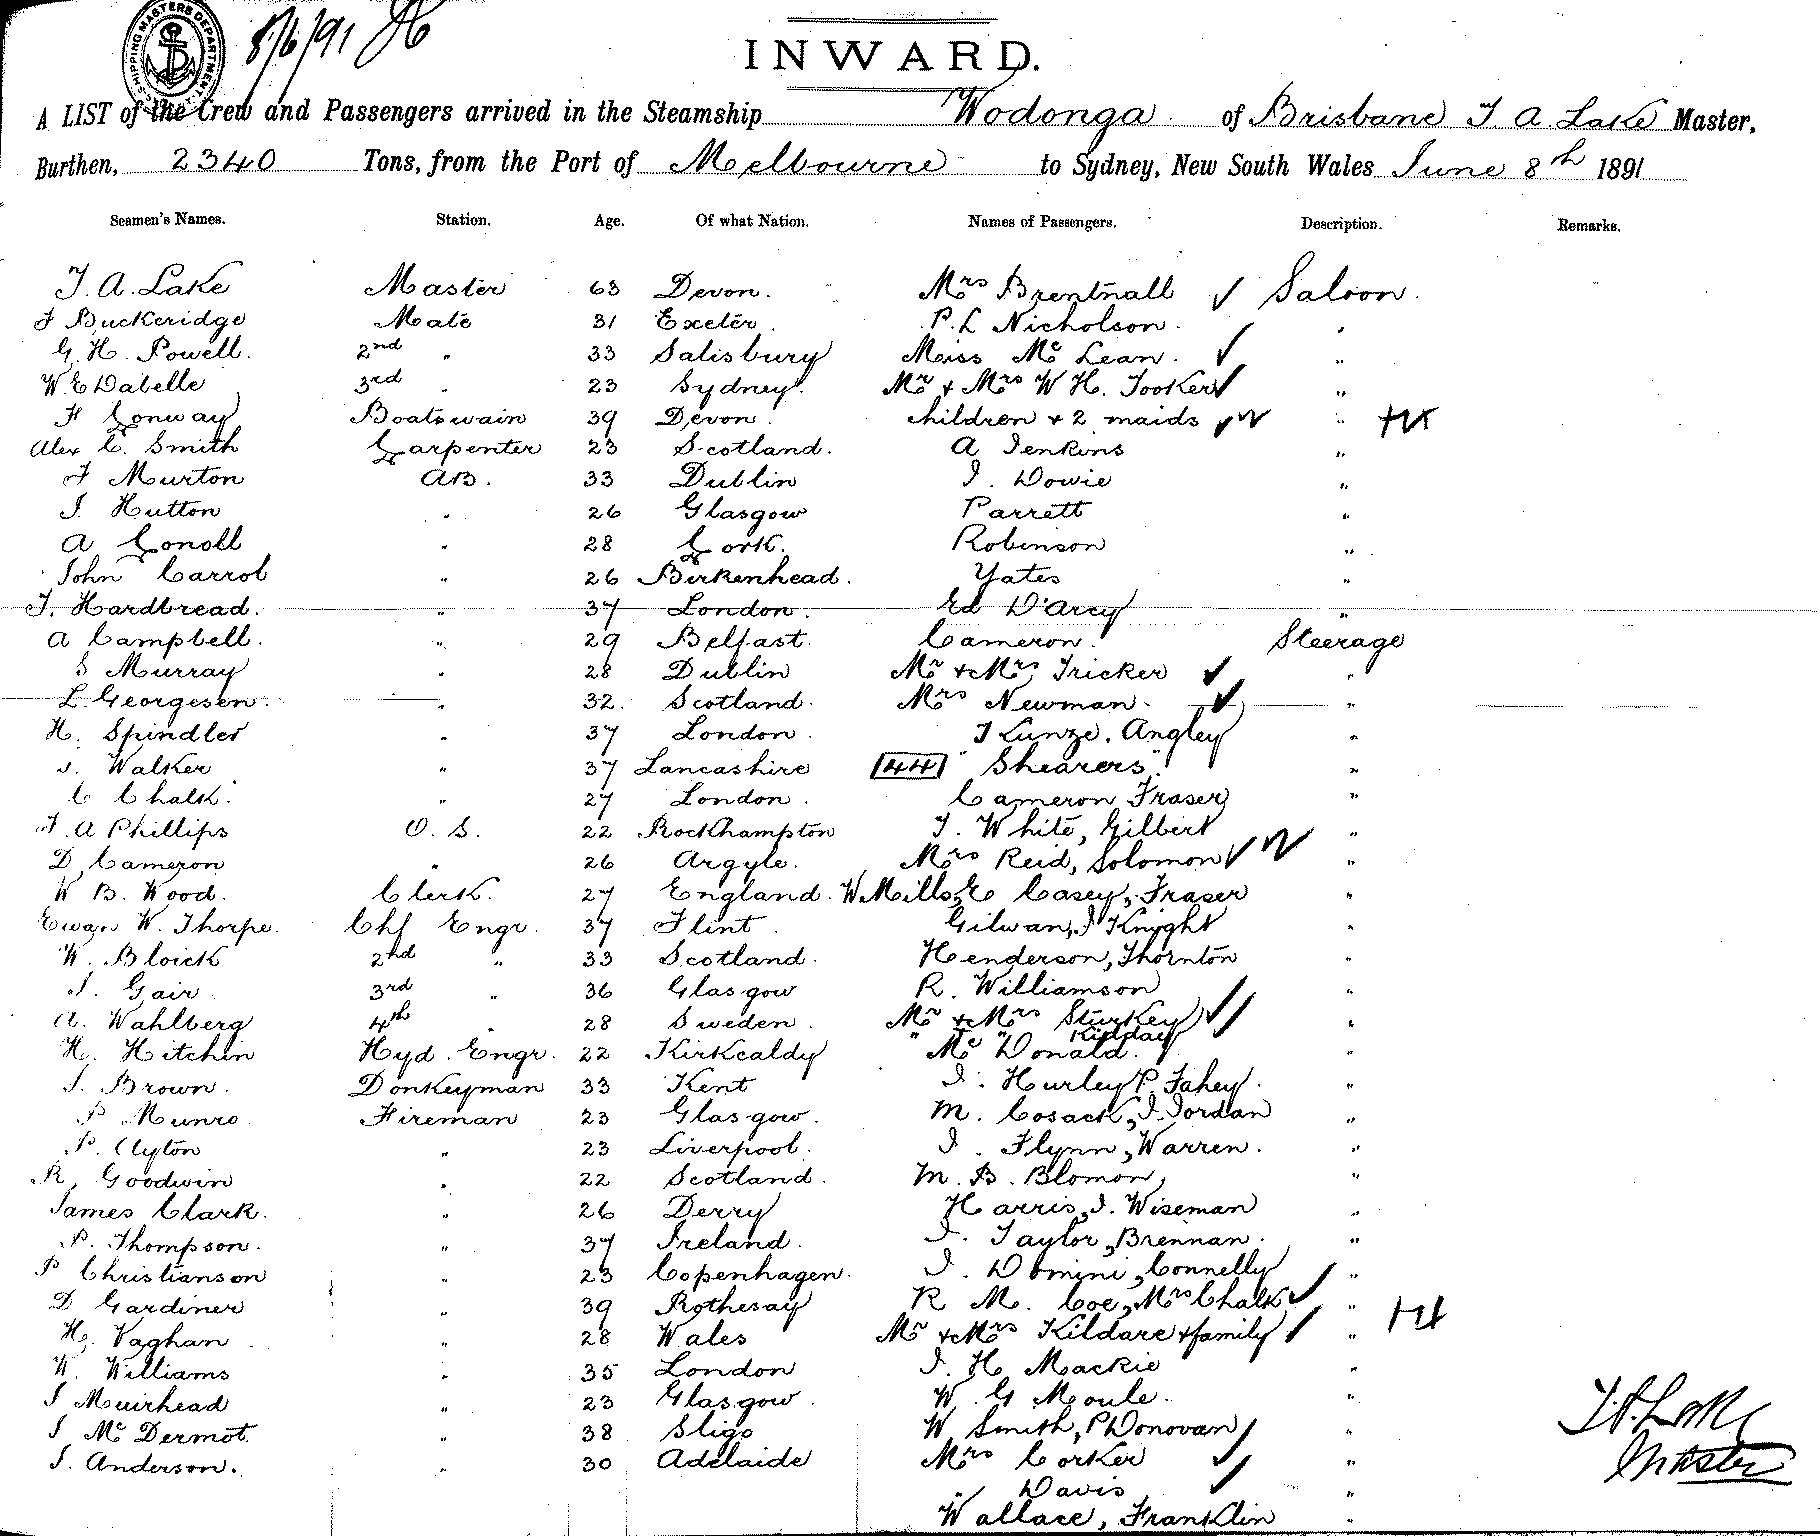 SHIPPING MASTERS DEPARTMENT
8/6/91
INWARD.
A LIST of the Crew and Passengers arrived in the Steamship Wodonga of Brisbane T. A. Lake Master,
Burthen, 2340 Tons, from the Port of Melbourne to Sydney, New South Wales June 8th 1891
Seamen's Names. Station. Age. Of what Nation. Names of Passengers. Description. Remarks.
T. A. Lake Master 63 Devon. Mrs Brentnall ✓ Saloon.
F Buckeridge Mate 31 Exeter. P. L Nicholson. "
G. H. Powell. 2nd " 33 Salisbury Miss Mc Lean. ✓ "
W. E Dabelle 3rd " 23 Sydney. Mr & Mrs W H. Tooker ✓ "
H Conway Boatswain 39 Devon. children & 2 maids ✓ "
Alex C. Smith Carpenter 23 Scotland. A Jenkins "
F Murton AB. 33 Dublin J. Dowie "
J. Hutton " 26 Glasgow Parrett "
A Conoll " 28 Cork. Robinson "
John Carrol " 26 Birkenhead. Yates "
T. Hardbread. " 37 London. Ed D'Arcy "
A Campbell. " 29 Belfast. Cameron. Steerage
S Murray " 28 Dublin Mr & Mrs Tricker ✓ "
L. Georgesen. " 32. Scotland. Mrs Newman. ✓ "
H. Spindler " 37 London. J Kunze, Angley "
J. Walker " 37 Lancashire 44 "Shearers" "
C Chalk. " 27 London. Cameron Fraser "
F. A Phillips O. S. 22 Rockhampton T. White, Gilbert "
D. Cameron " 26 Argyle. Mrs Reid, Solomon ✓ "
W B. Wood. Clerk. 27 England. W. Mills, E Casey, Fraser "
Ewan W. Thorpe. Chf Engr. 37 Flint. Gilwan, J Knight "
W. Bloick 2nd " 33 Scotland. Henderson, Thornton "
J. Gair 3rd " 36 Glasgow R. Williamson "
A. Wahlberg 4th " 28 Sweden. Mr & Mrs Sturkey ✓ "
" " Kidday
H. Hitchin Hyd. Engr. 22 Kirkcaldy Mc Donald. "
J. Brown. Donkeyman 33 Kent J. Hurley P. Fahey. "
P Munro Fireman 23 Glasgow. M. Cosack, J. Jordan "
P. Clyton " 23 Liverpool. J. Flynn, Warren. "
R. Goodwin " 22 Scotland. M. B. Blomon, "
James Clark. " 26 Derry Harris, J. Wiseman "
P. Thompson. " 37 Ireland. J. Taylor, Brennan. "
P Christianson " 23 Copenhagen. J. Domini, Connelly "
D Gardiner " 39 Rothesay R M. Coe, Mrs Chalk ✓ "
H. Vaghan " 28 Wales Mr & Mrs Kildare & family ✓ "
W. Williams " 35 London J. H Mackie "
J Muirhead " 23 Glasgow. W. G Moule. "
J Mc Dermot. " 38 Sligo W Smith, P Donovan "
J. Anderson. " 30 Adelaide Mrs Corker ✓ "
" Davis ✓ "
Wallace, Franklin "
T. A. Lake
Master